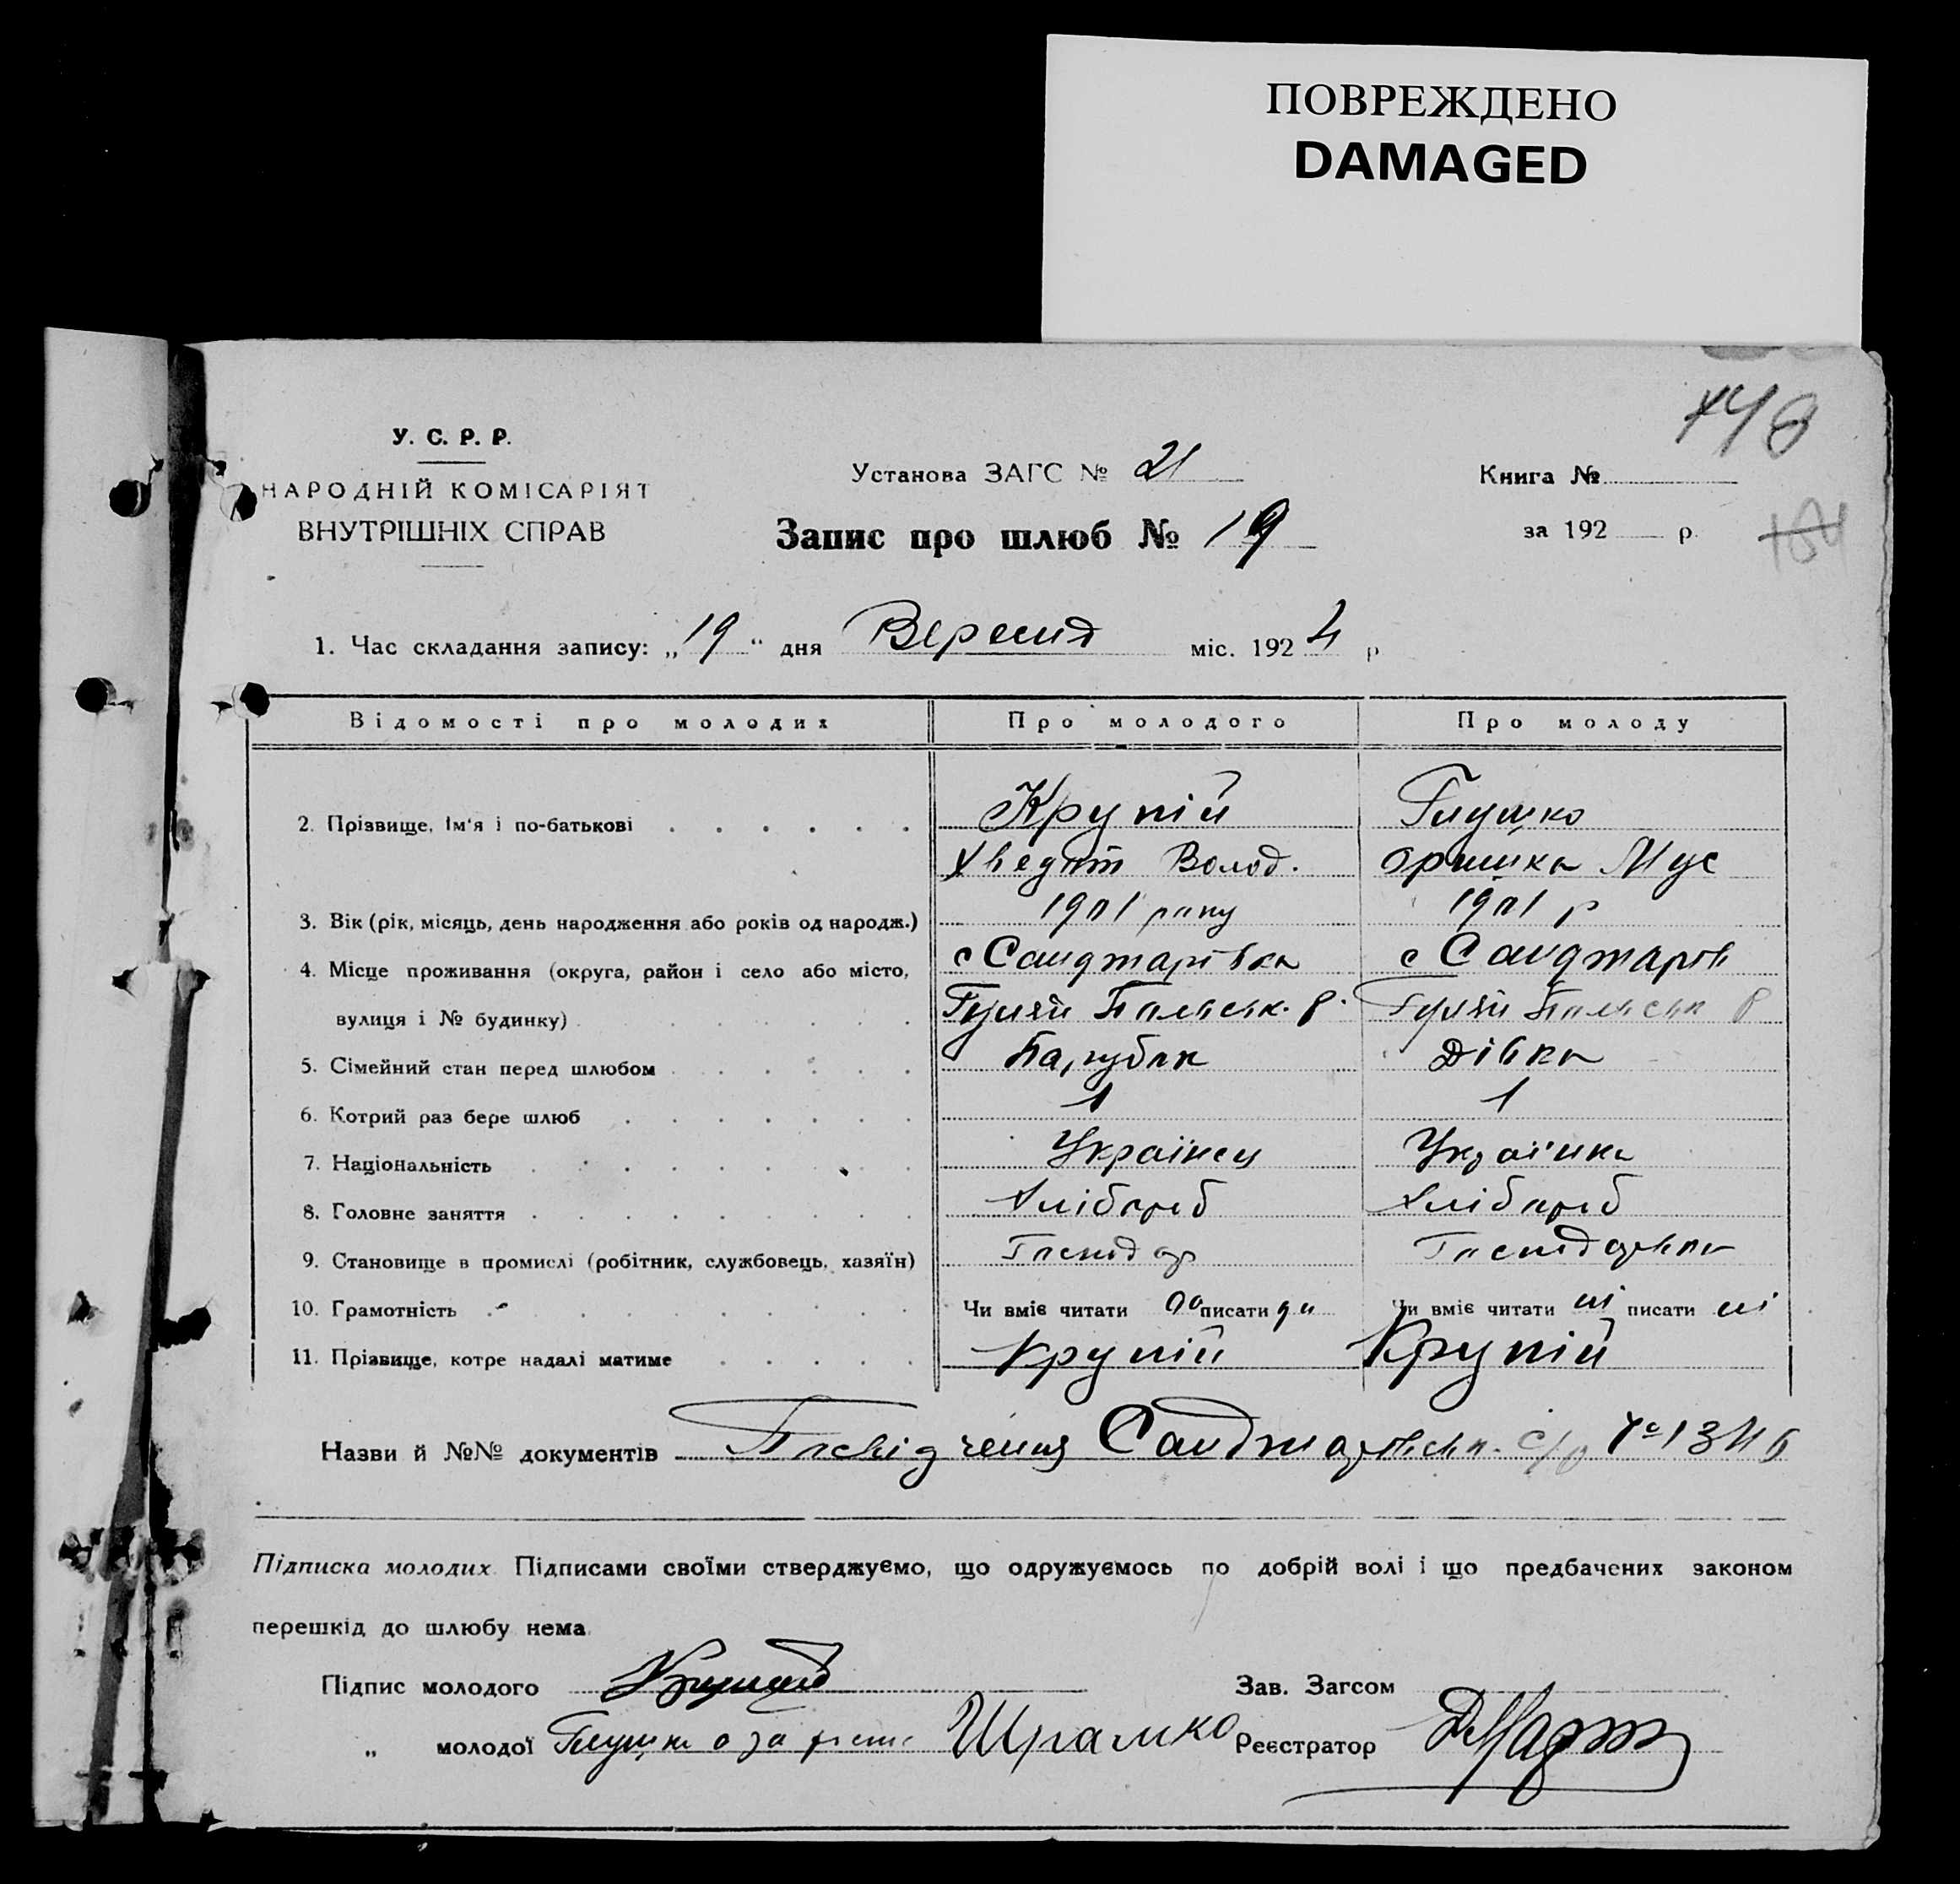 ПОВРЕЖДЕНО
DAMAGED
У. С. Р. Р.
НАРОДНІЙ КОМІСАРІЯТ
ВНУТРІШНІХ СПРАВ
Установа ЗАГС № 21
Запис про шлюб № 19
Книга №
за 192 р.
1. Час складання запису: „19“ дня Вересня міс. 1924 р
Відомості про молодих Про молодого Про молоду
2. Прізвище, Ім'я і по-батькові Крупій Глушко
Хведот Волод. Оришка Мус
3. Вік (рік, місяць, день народження або років од народж.) 1901 року 1901 р
4. Місце проживання (округа, район і село або місто, с Санджарівка с Санджарів
вулиця і № будинку) Гуляй Польськ. р. Гуляй Польськ р
5. Сімейний стан перед шлюбом Парубок Дівка
6. Котрий раз бере шлюб 1 1
7. Національність Українец Українка
8. Головне заняття Хлібороб Хлібороб
9. Становище в промислі (робітник, службовець, хазяїн) Господар Господарька
10. Грамотність Чи вміє читати писати Чи вміє читати ні писати ні
11. Прізвище, котре надалі матиме Крупій Крупій
Назви й №№ документів Посвідчення Санджарівськ. с/р № 1346
Підписка молодих. Підписами своїми стверджуємо, що одружуємось по добрій волі і що предбачених законом
перешкід до шлюбу нема.
Підпис молодого Зав. Загсом
„ молодої Глушко Шрамко Реєстратор